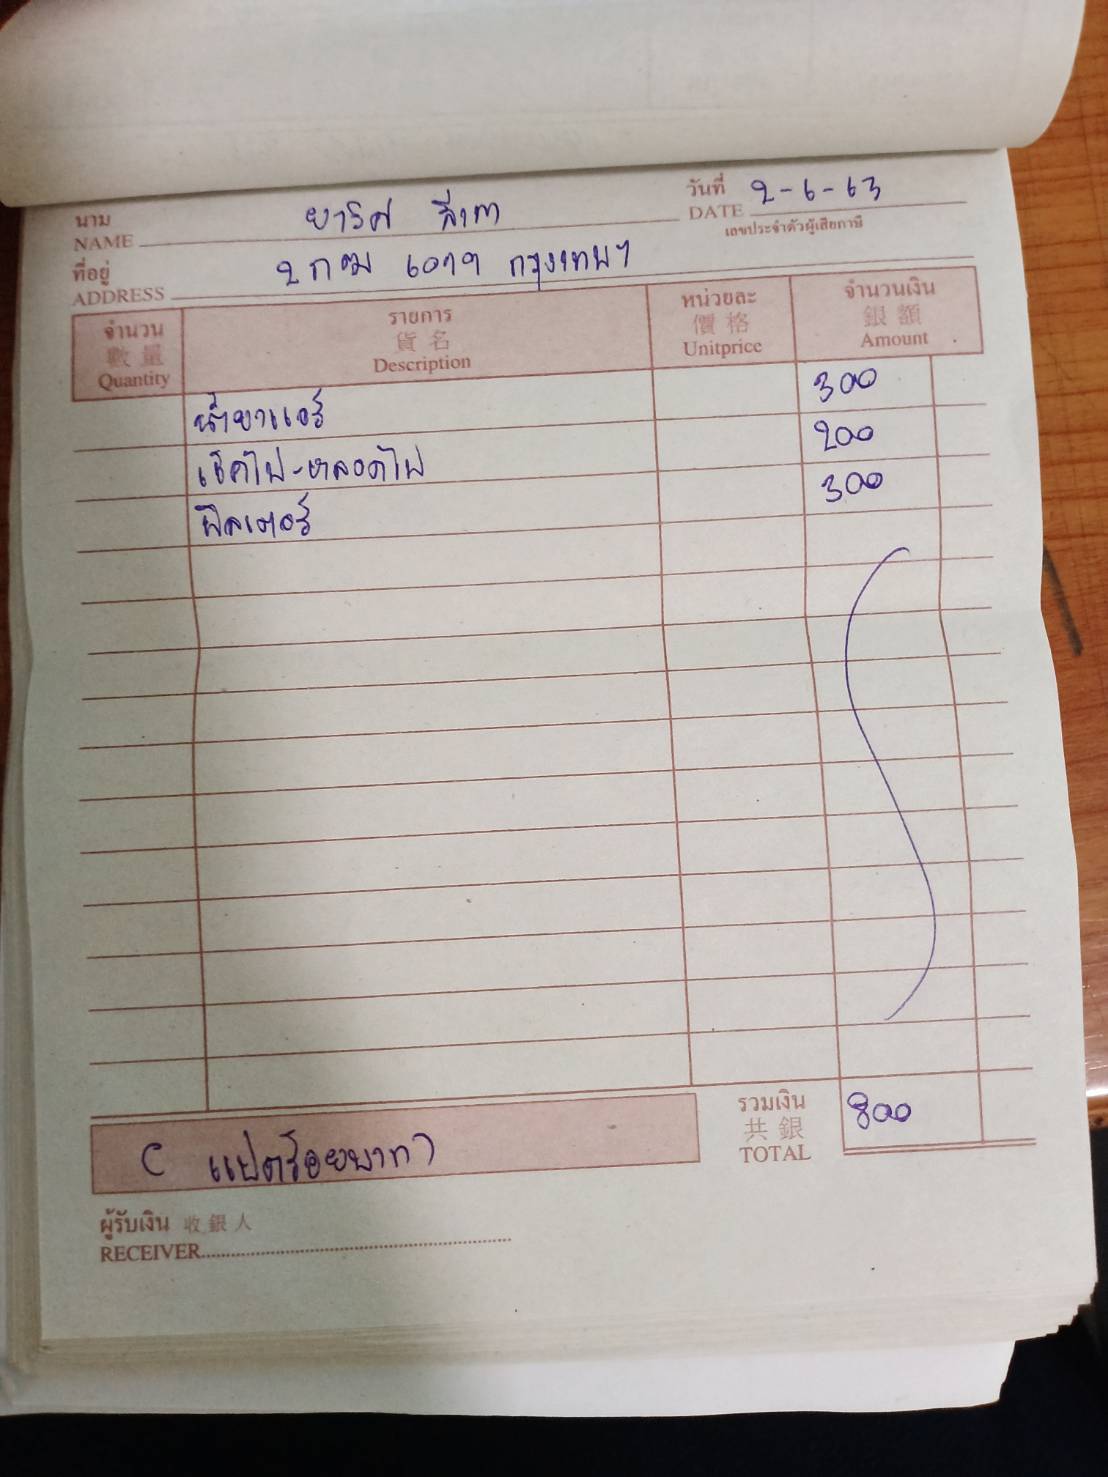 นาม ยาริศ สีเทา วันที่ 2-6-63
NAME DATE
เลขประจำตัวผู้เสียภาษี
ที่อยู่ 2กฒ 6019 กรุงเทพฯ
ADDRESS
จำนวน รายการ หน่วยละ จำนวนเงิน
數量 貨名 價格 銀額
Quantity Description Unitprice Amount
น้ำยาแอร์ 300
เช็คไฟ-หลอดไฟ 200
ฟิลเตอร์ 300
รวมเงิน 800
共銀
TOTAL
( แปดร้อยบาท )
ผู้รับเงิน 收銀人
RECEIVER